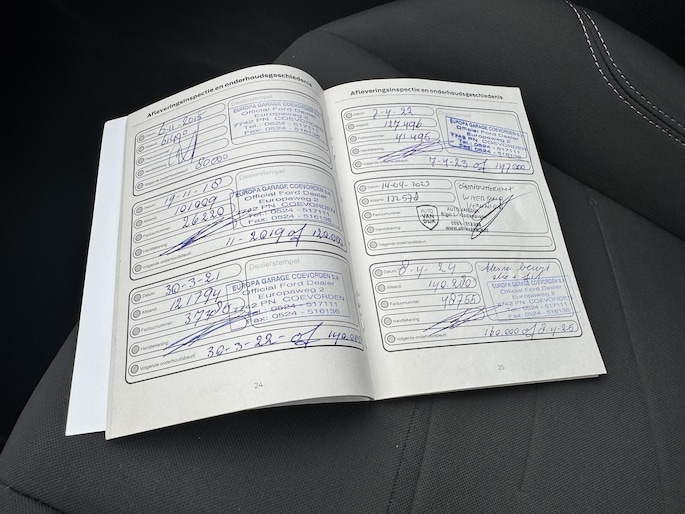 Afleveringsinspectie en onderhoudsgeschiedenis
5-11-2015
EUROPA GARAGE COEVORDEN B.V.
Official Ford Dealer
Europaweg 2
7742 PN COEVORDEN
Tel.: 0524 - 517111
Fax: 0524 - 516136
80000
19-11-18
101009
26220
Dealerstempel
EUROPA GARAGE COEVORDEN B.V.
Official Ford Dealer
Europaweg 2
7742 PN COEVORDEN
Tel.: 0524 - 517111
Fax: 0524 - 516136
Handtekening
Volgende onderhoudsbeurt
11-2019 of 120.000
Datum
30-3-21
Afstand
121794
Factuurnummer
Handtekening
Dealerstempel
EUROPA GARAGE COEVORDEN B.V.
Official Ford Dealer
Europaweg 2
7742 PN COEVORDEN
Tel.: 0524 - 517111
Fax: 0524 - 516136
Volgende onderhoudsbeurt
30-3-22 - of 140.000
24
Afleveringsinspectie en onderhoudsgeschiedenis
7-4-22
127496
41496
EUROPA GARAGE COEVORDEN B.V.
Official Ford Dealer
Europaweg 2
7742 PN COEVORDEN
Tel.: 0524 - 517111
Fax: 0524 - 516136
7-4-23 of 147000
Datum
14-04-2023
Afstand
Factuurnummer
Handtekening
AUTO
VAN
DIJK
Volgende onderhoudsbeurt
Datum
8-4-24
Afstand
140.280
Factuurnummer
48755
Handtekening
Kleine beurt
EUROPA GARAGE COEVORDEN B.V.
Official Ford Dealer
Europaweg 2
7742 PN COEVORDEN
Tel.: 0524 - 517111
Fax: 0524 - 516136
Volgende onderhoudsbeurt
160.000 of 8-4-25
25